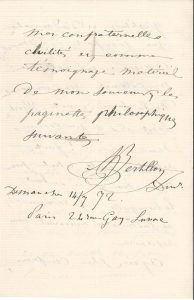 mes confraternelles
civilités et, comme
témoignage matériel
de mon souvenir, les
paginettes philosophiques
suivantes
Bertillon
Dimanche 14/7 72
Paris 24 rue Gay-Lussac